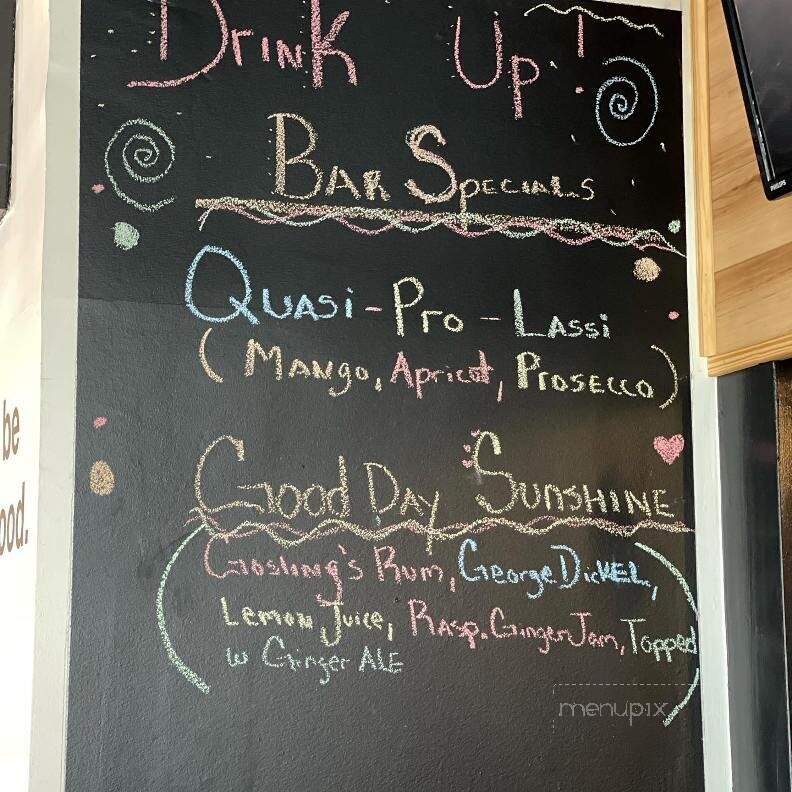 Drink Up!
Bar Specials
Quasi-Pro-Lassi
(Mango, Apricot, Prosecco)
Good Day Sunshine
(Gosling's Rum, George Dickel,
Lemon Juice, Rasp. Ginger Jam, Topped
w Ginger Ale)
be
ood.
PHILIPS
menupix